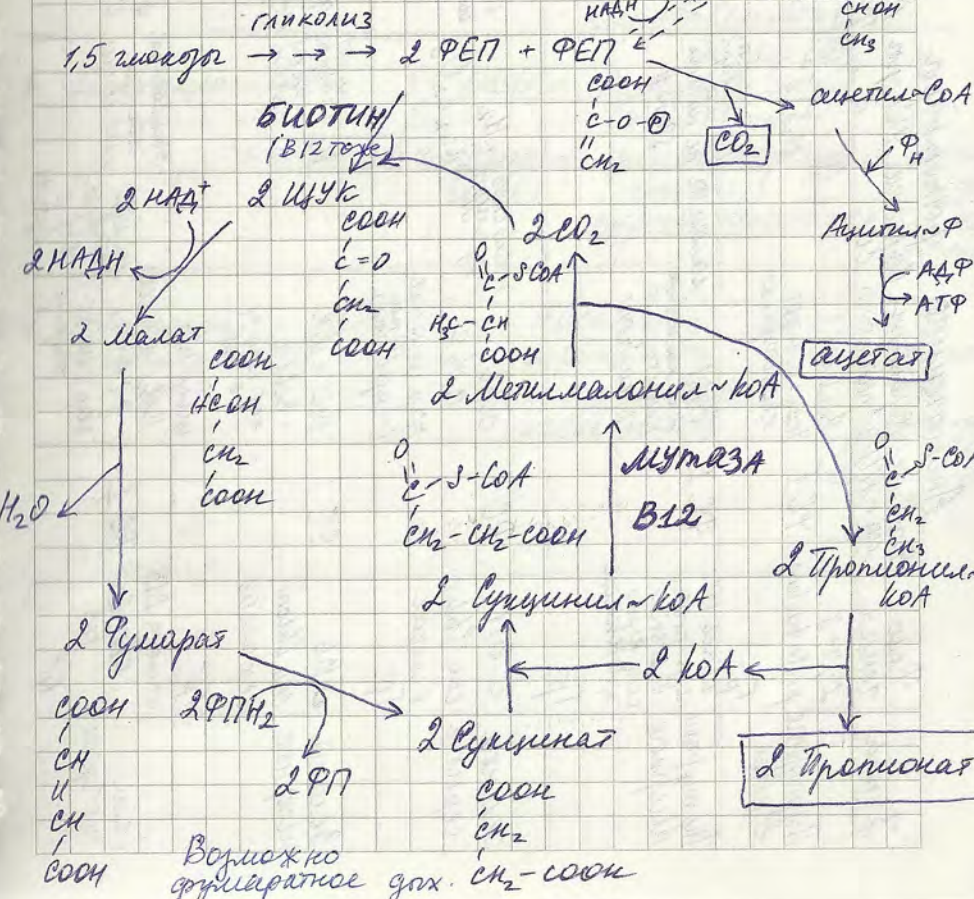 гликолиз
НАДН
CHOH
CH₃
1,5 глюкозы → → → 2 ФЕП + ФЕП
COOH
C-O-Ⓟ
CH₂
CO₂
ацетил~CoA
Фн
БИОТИН
(B12 тоже)
2 НАД⁺
2 ЩУК
COOH
C=O
CH₂
COOH
2CO₂
Ацетил~Ф
2НАДН
O
C-SCoA
H₃C-CH
COOH
АДФ
АТФ
2 Малат
COOH
HCOH
CH₂
COOH
ацетат
2 Метилмалонил~koA
O
C-S-CoA
CH₂-CH₂-COOH
мутаза
B12
O
C
S-CoA
CH₂
CH₃
H₂O
2 Пропионил~
koA
2 Сукцинил~koA
2 Фумарат
2 koA
COOH
CH
CH
COOH
2ФПН₂
2ФП
2 Сукцинат
COOH
CH₂
CH₂-COOH
2 Пропионат
Возможно
фумаратное дых.